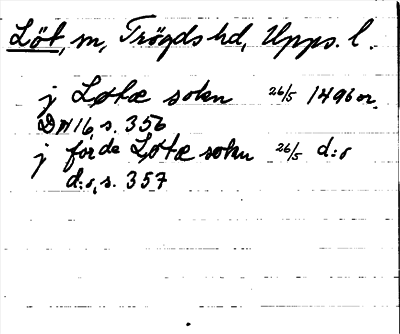 Löt, m, Trögds hd, Upps. l.
j Løtæ sokn 26/5 1496 or.
DN 16, s. 356
j forde Løtæ sokn 26/5 d:o
d:o, s. 357